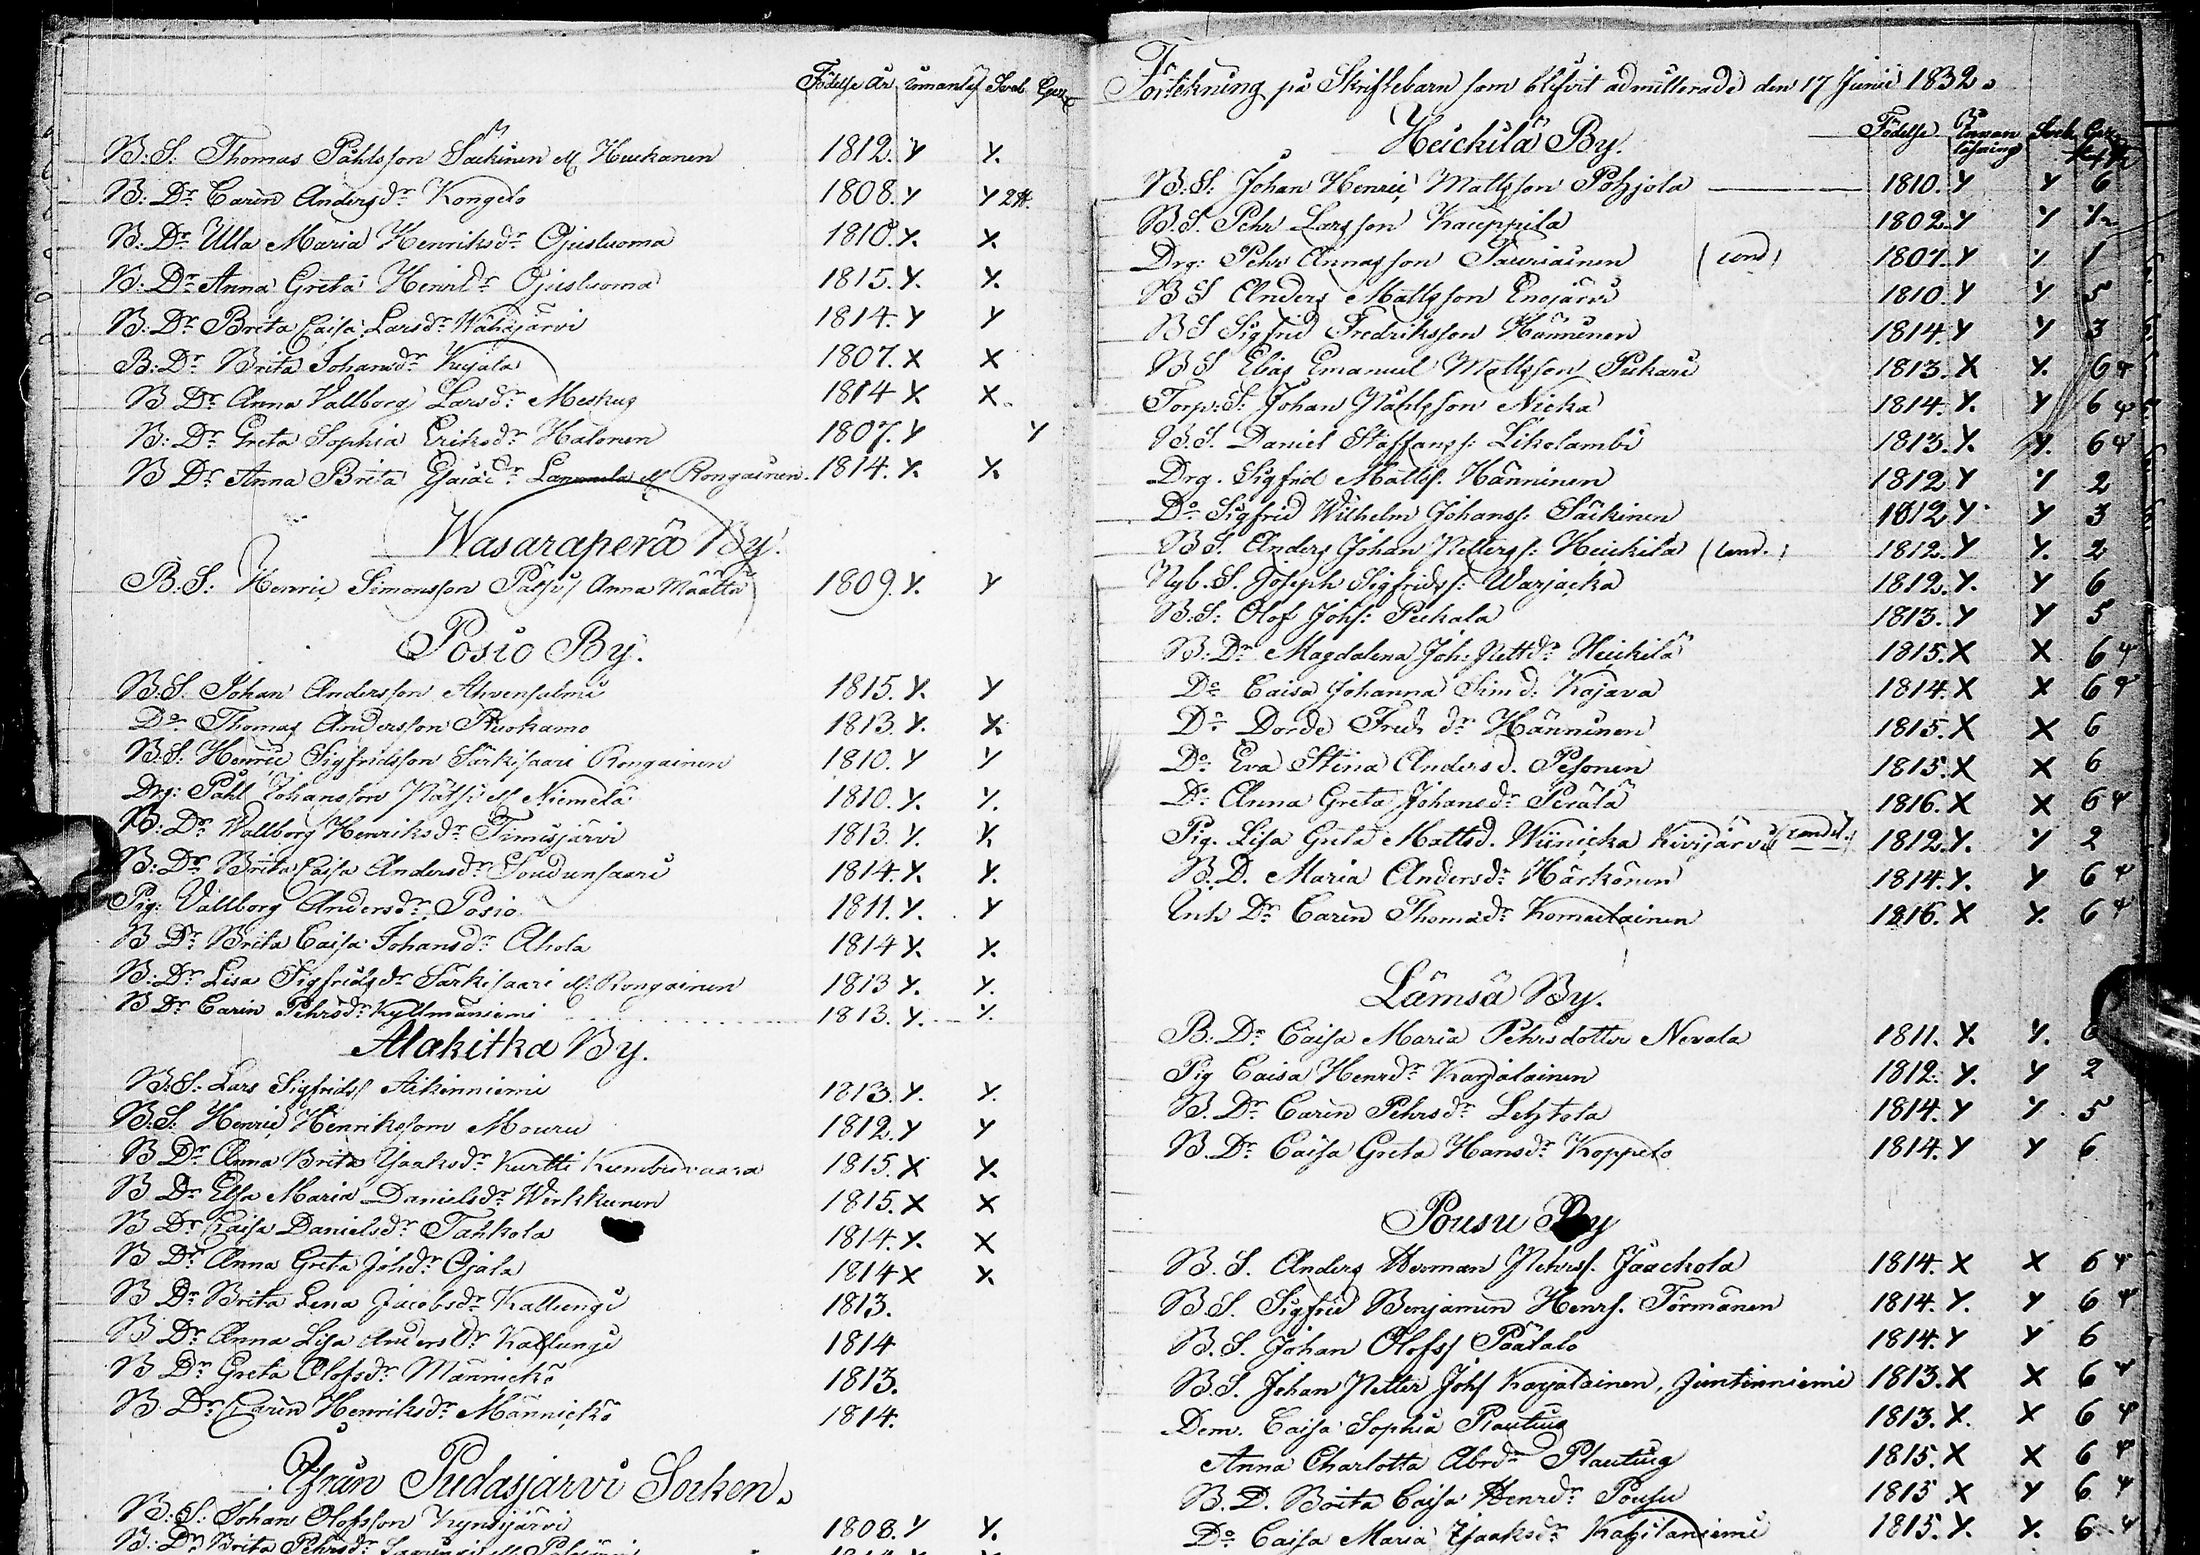 Födelse År Innantil
B: S: Thomas Påhlsson Säkinen
1812. Y Y.
B: Dr Carin Andersdr Kongelo
1808. Y Y
B: Dr Ulla Maria Henriksdr Ojusluoma
1810. Y. X.
B: Dr Anna Greta Henrdr Ojusluoma
1815. Y. Y.
B: Dr Brita Caisa Larsdr Wähäjärvi
1814. Y Y
B: Dr Brita Johansdr Kujala
1807. X X
B Dr Anna Vallborg Larsdr Meskus
1814 X X
B: Dr Greta Sophia Eriksdr Halonen
1807. Y Y
B Dr Anna Brita Rongainen 1814. Y. X.
Wasaraperä By.
B: S: Henric Simonsson Anna Määttä
1809. Y. Y
Posio By.
B: S. Johan Andersson Ahvensalmi
1815. Y. Y
Do Thomas Andersson Ruokamo
1813. Y. X
B: S: Henric Sigfridsson Särkisaari Rongainen
1810. Y Y
Drg: Påhl Johansson Niemelä
1810. Y. Y.
B: Dr Wallborg Henriksdr Timisjärvi
1813 Y. Y.
B: Dr Brita Caisa Andersdr Soudunsaari
1814. Y. Y.
Pig: Vallborg Andersdr Posio
1811. Y. Y
B Dr Brita Caisa Johansdr Ahola
1814 Y. Y.
B: Dr Lisa Sigfridsdr Särkisaari Rongainen
1813 Y. Y.
B Dr Carin Pehrsdr Kyllmäniemi
1813. Y. Y.
Alakitka By.
B: S: Lars Sigfrids Äikinniemi
1813. Y. Y.
B: S: Henric Henriksson Mouru
1812. Y Y
B Dr Anna Brita Isaaksdr Kurtti Kumbuvaara
1815. X Y.
B Dr Elsa Maria Danielsdr Wirkkunen
1815. X X
B Dr Caisa Danielsdr Tahkola
1814. Y. X
B Dr Anna Greta Johdr Ojala
1814 X Y.
B Dr Brita Lena Jacobsdr Kallungi
1813.
B Dr Anna Lisa Andersdr Kallungi
1814
B Dr Greta Olofsdr Männickö
1813.
B Dr Carin Henriksdr Männickö
1814.
Ifrån Pudasjärvi Socken.
B: S: Johan Olofsson Kynsijärvi
1808. Y Y.
B: Dr Brita Pehrsdr
Förtekning på Skriftebarn som blifvit admitterade den 17 Junii 1832.
Heickilä By.
Födelse Innan läsning
B: S: Johan Henric Mattsson Pohjola
1810. Y Y 6
B. S. Pehr Larsson Kauppila
1802. Y Y
Drg: Pehr Annasson Tauriainen (cond)
1807. Y Y 1
B S Anders Mattsson Enojärvi
1810. Y Y 5
B S Sigfrid Fredriksson Hänninen
1814. Y Y 3
B S Elias Emanuel Mattsson Piukari
1813. X Y. 6
Torp: S: Johan Påhlsson Nicka
1814. Y. Y 6
B. S. Daniel Staffanss: Likolambi
1813. Y. Y. 6
Drg. Sigfrid Matts. Hänninen
1812 Y Y 2
Do Sigfrid Wilhelm Johanss: Säkinen
1812. Y Y 3
B S. Anders Johan Petterss: Heickilä (cond.)
1812. Y Y. 2
Nyb. S. Joseph Sigfridss: Warjacka
1812. Y. Y 6
B: S: Olof Johs: Pukala
1813. Y Y 5
B: Dr Magdalena Joh: Pettdr Heickilä
1815. X X 6
Do Caisa Johanna Simd: Kajava
1814. X X 6
Do Dorde Fredr dr Hänninen
1815. X X 6
Do Eva Stina Andersd. Pesonen
1815. X X 6
Do Anna Greta Johansdr Perälä
1816. X X 6
Pig. Lisa Greta Mattsd. Wiinicka Kivijärvi (cond.)
1812. Y. Y 2
B. D. Maria Andersdr Härkönen
1814. Y. Y 6
Inh Dr Carin Thomadr Komulainen
1816. X Y. 6
Lämsä By.
B: Dr Caisa Maria Pehrsdotter Nevala
1811. X. Y. 6
Pig Caisa Henrdr Karjalainen
1812. Y. Y 2
B. Dr Carin Pehrsdr Lehtola
1814. Y Y. 5
B. Dr Caisa Greta Hansdr Koppelo
1814. Y Y 6
Pousu By
B. S. Anders Herman Pehrs. Jaackola
1814. X X 6
B S. Sigfrid Benjamin Henrs. Törmänen
1814. Y. Y 6
B. S. Johan Olofss Päätalo
1814. Y Y 6
B. S. Johan Petter Johs Karjalainen, Juntinniemi
1813. X X 6
Dem. Caisa Sophia Plantus
1813. X. X 6
Anna Charlotta Abrdr Plantus
1815. X X 6
B. D. Brita Caisa Henrdr Pousu
1815 X Y 6
Do Caisa Maria Isaaksdr
1815. Y. Y. 6